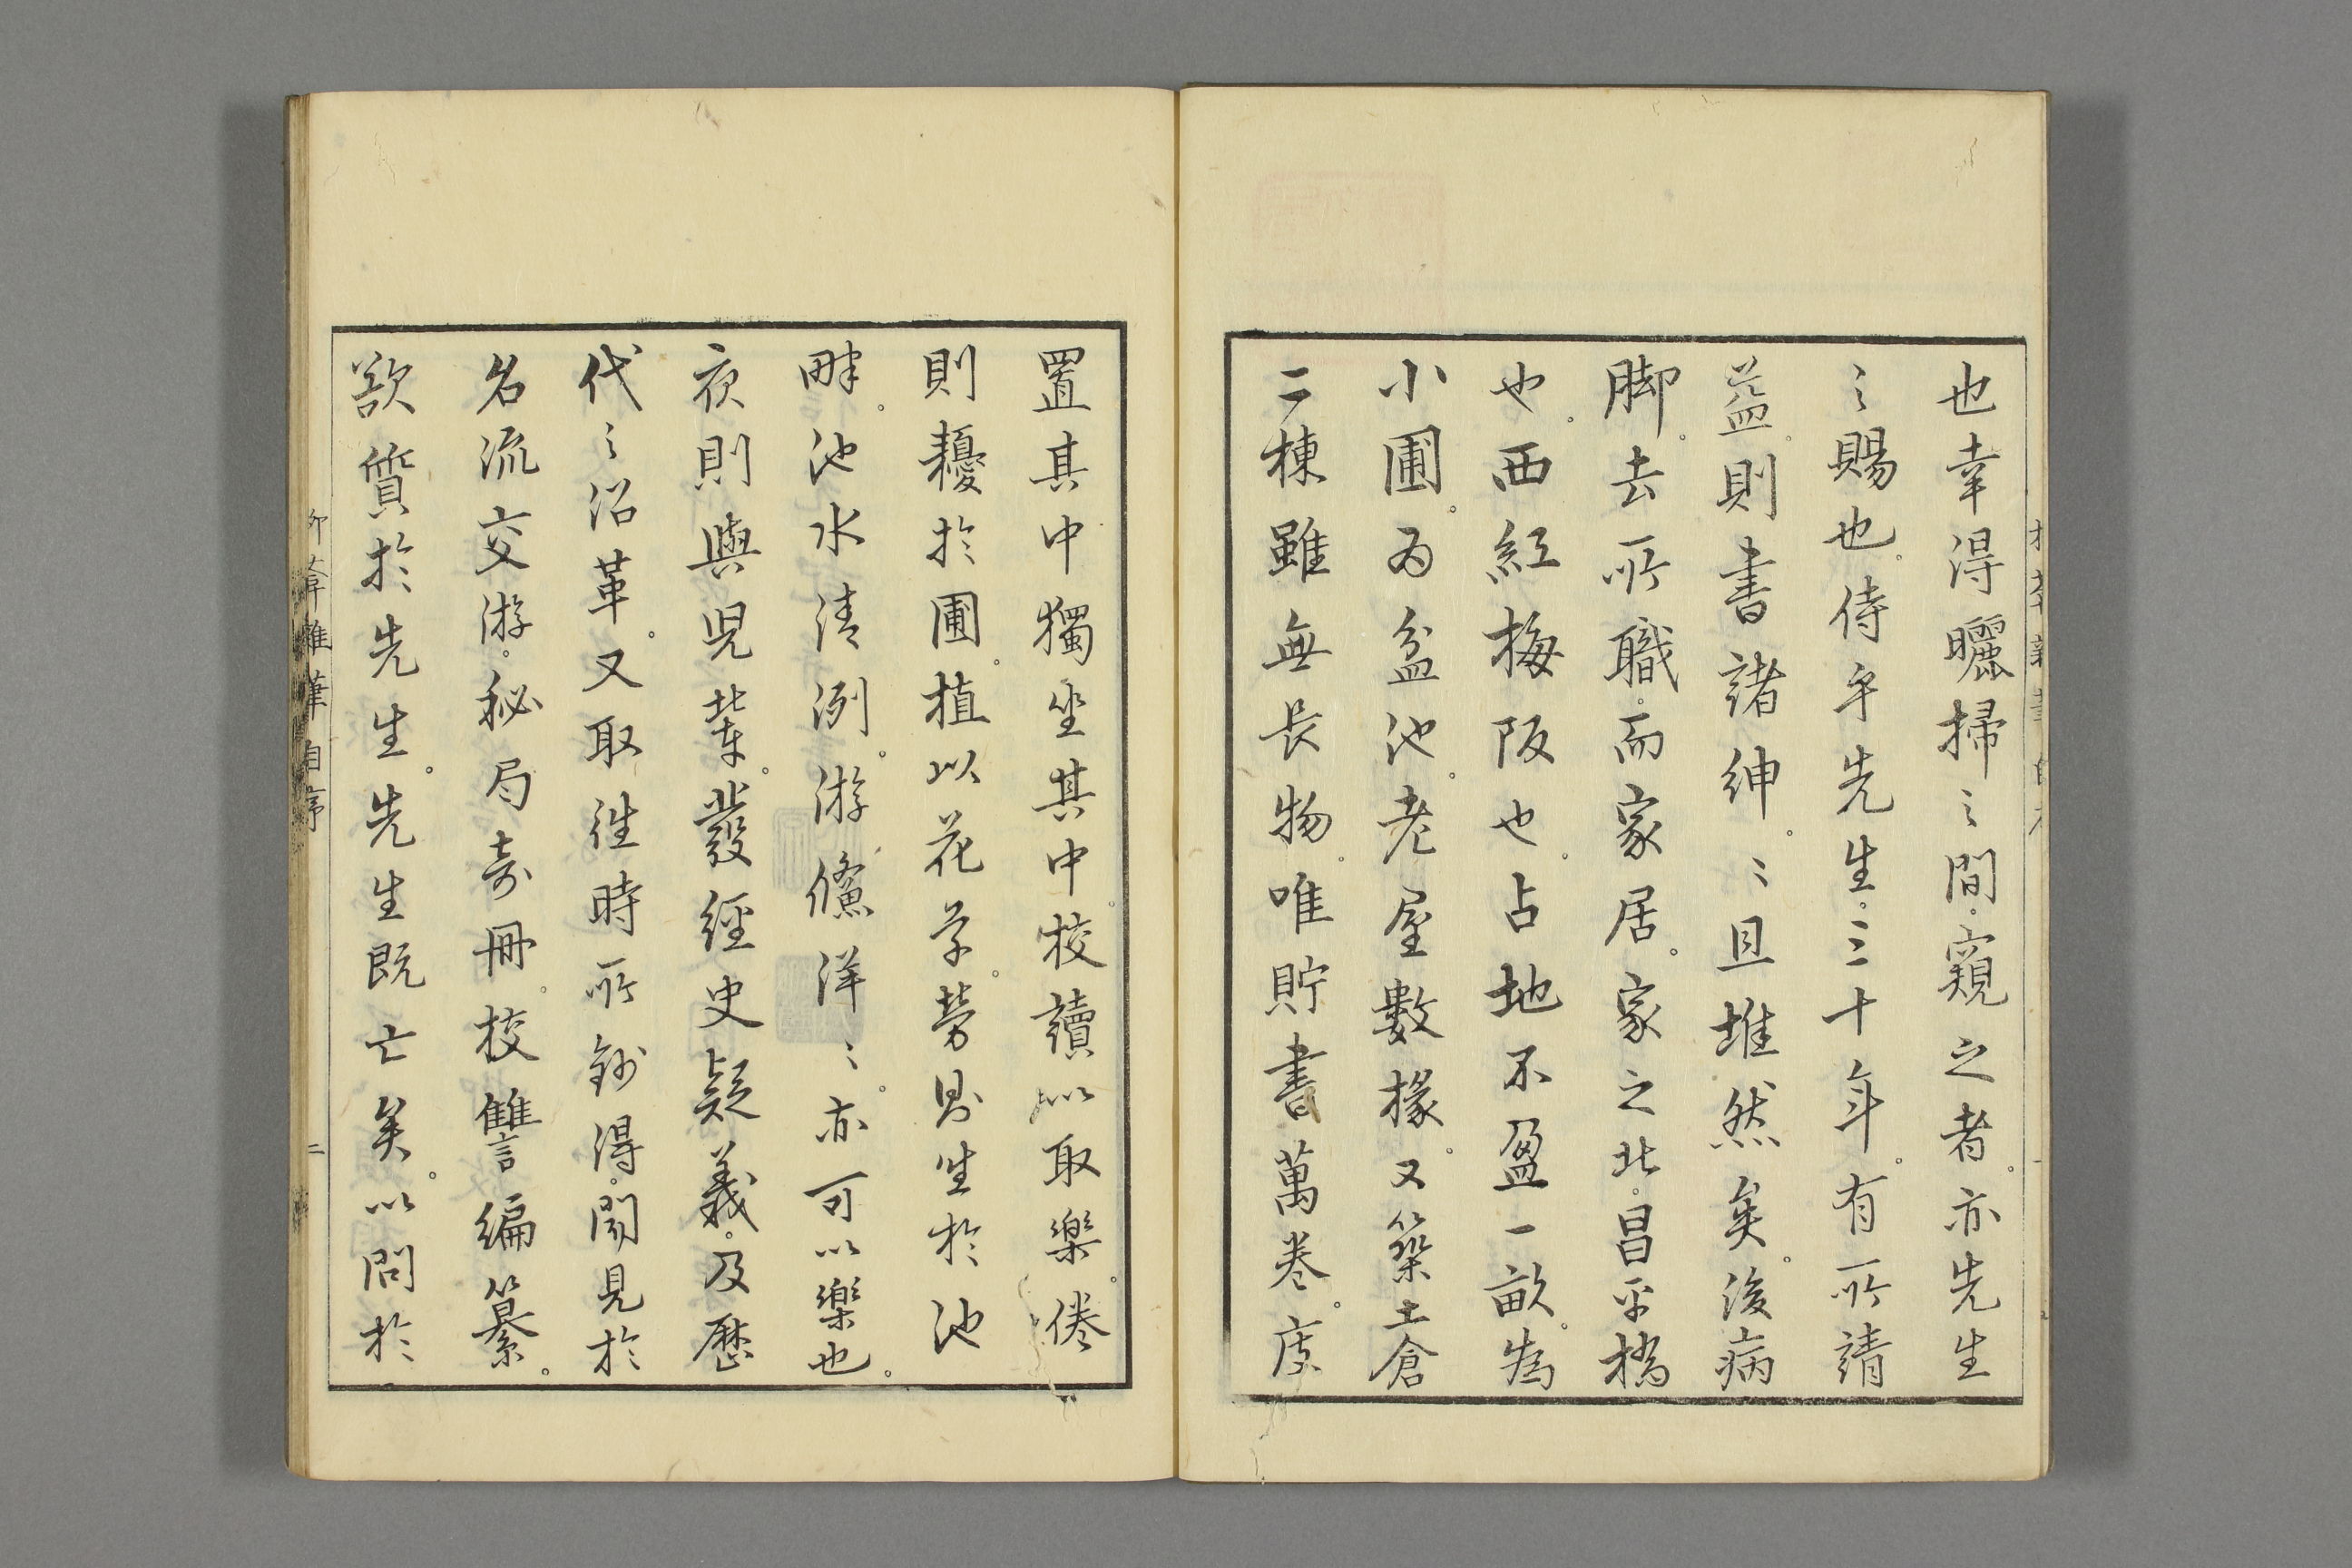 也幸得曬掃之間。窺之者。亦先生
之賜也。侍乎先生。三十年。有所請
益。則書諸紳。〻且堆然矣。後病
脚。去所職。而家居。家之北。昌平橋
也。西紅梅阪也。占地不盈一畝。為
小圃。為盆池。老屋數椽。又築土倉
二棟雖無長物。唯貯書萬卷。庋
置其中獨坐其中。校讀以取樂。倦
則耰於圃。植以花草。勞則坐於池
畔。池水清洌。游鯈洋〻。亦可以樂也。
夜則與児輩。發經史疑義。及歷
代之沿革。又取徃時所鈔得。聞見於
名流交游。秘局奇冊。校讎編纂。
欲質於先生。先生既亡矣。以問於
雜筆 自序 二